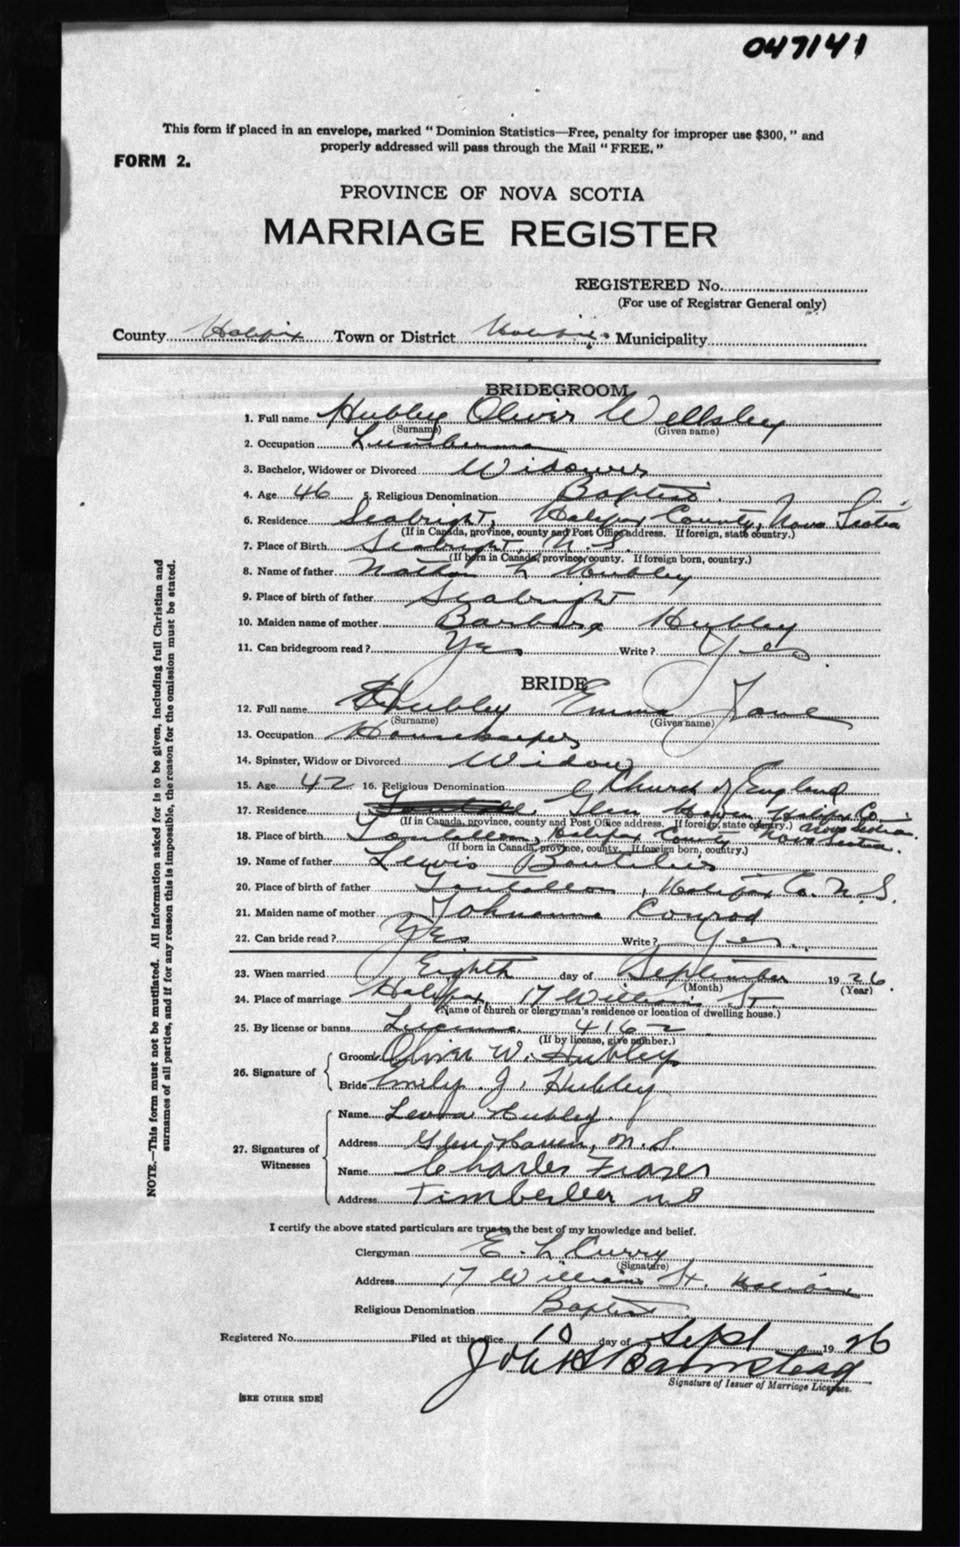 047141
This form if placed in an envelope, marked "Dominion Statistics—Free, penalty for improper use $300," and
properly addressed will pass through the Mail "FREE."
FORM 2.
PROVINCE OF NOVA SCOTIA
MARRIAGE REGISTER
REGISTERED No.
(For use of Registrar General only)
County Halifax Town or District Halifax Municipality
BRIDEGROOM
1. Full name Hubley Oliver Wellsley
(Surname) (Given name)
2. Occupation Lumberman
3. Bachelor, Widower or Divorced Widower
4. Age 46 5. Religious Denomination Baptist
6. Residence Seabright, Halifax County, Nova Scotia
(If in Canada, province, county and Post Office address. If foreign, state country.)
7. Place of Birth Seabright, N.S.
(If born in Canada, province, county. If foreign born, country.)
8. Name of father Nathan L Hubley
9. Place of birth of father Seabright
10. Maiden name of mother Barbara Hubley
11. Can bridegroom read? Yes Write? Yes
BRIDE
12. Full name Hubley Emma Jane
(Surname) (Given name)
13. Occupation Housekeeper
14. Spinster, Widow or Divorced Widow
15. Age 42 16. Religious Denomination Church of England
17. Residence Glen Haven Halifax Co.
(If in Canada, province, county and Post Office address. If foreign, state country.) Nova Scotia.
18. Place of birth Tantallon, Halifax County Nova Scotia.
(If born in Canada, province, county. If foreign born, country.)
19. Name of father Lewis Boutilier
20. Place of birth of father Tantallon, Halifax Co. N.S.
21. Maiden name of mother Johnanna Conrod
22. Can bride read? Yes Write? Yes.
23. When married Eighth day of September 1926
(Month) (Year)
24. Place of marriage Halifax, 17 William St.
(Name of church or clergyman's residence or location of dwelling house.)
25. By license or banns License 4162
(If by license, give number.)
26. Signature of
Groom Oliver W. Hubley
Bride Emily J. Hubley
27. Signatures of Witnesses
Name Hubley
Address Glen Haven, N.S.
Name Charles Frazer
Address Timberlea N S
I certify the above stated particulars are true to the best of my knowledge and belief.
Clergyman E. L Curry
(Signature)
Address 17 William St. Halifax
Religious Denomination Baptist
Registered No. Filed at this office 10 day of Sept 1926
John S Barnstead
Signature of Issuer of Marriage Licenses.
[SEE OTHER SIDE]
NOTE.—This form must not be mutilated. All information asked for is to be given, including full Christian and
surnames of all parties, and if for any reason this is impossible, the reason for the omission must be stated.